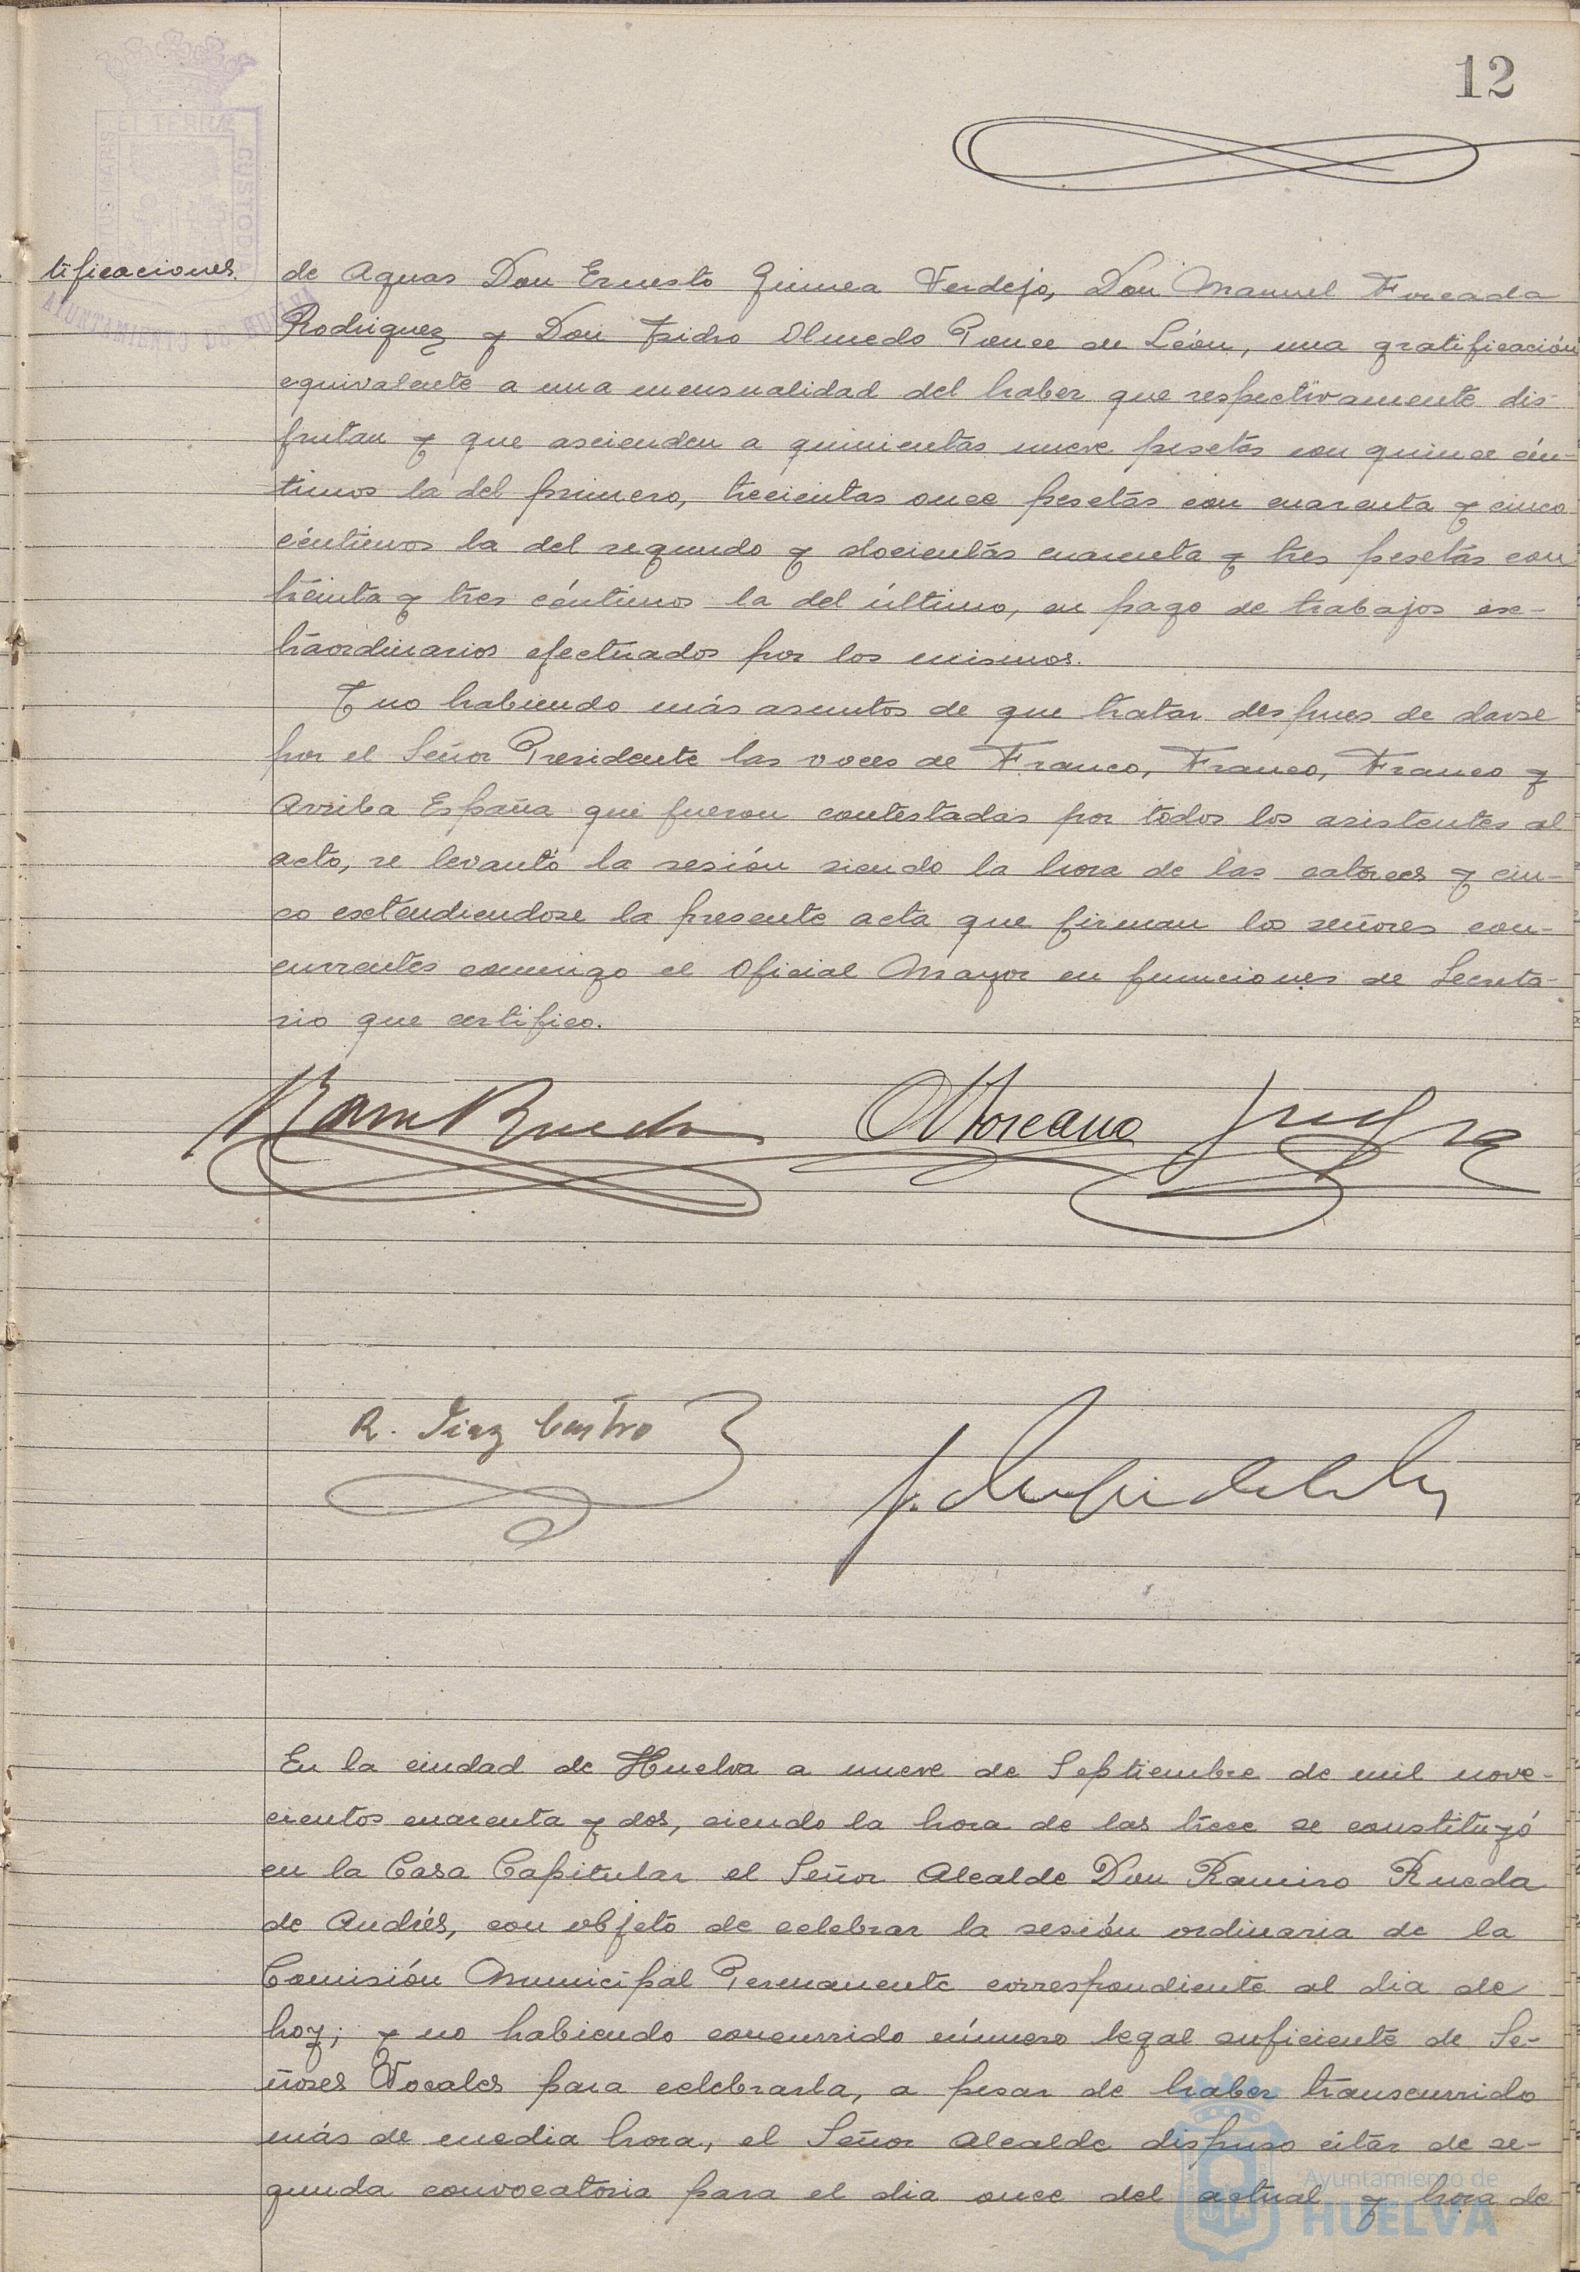 12
tificaciones.
de Aguas Don Ernesto Guinea Verdejo, Don Manuel Forcada
Rodriguez y Don Isidro Olmedo Ponce de León, una gratificación
equivalente a una mensualidad del haber que respectivamente dis-
frutan y que ascienden a quinientas nueve pesetas con quince cén-
timos la del primero, trecientas once pesetas con cuarenta y cinco
céntimos la del segundo y docientas cuarenta y tres pesetas con
treinta y tres céntimos la del último, en pago de trabajos ex-
traordinarios efectuados por los mismos.
Y no habiendo más asuntos de que tratar despues de darse
por el Señor Presidente las voces de Franco, Franco, Franco y
Arriba España que fueron contestadas por todos los asistentes al
acto, se levantó la sesión siendo la hora de las catorces y cin-
co extendiendose la presente acta que firman los señores con-
currentes conmigo el Oficial Mayor en funciones de Secreta-
rio que certifico.
Ram Rueda
Moreano
R. Diaz Castro
En la ciudad de Huelva a nueve de Septiembre de mil nove-
cientos cuarenta y dos, siendo la hora de las trece se constituyó
en la Casa Capitular el Señor Alcalde Don Ramiro Rueda
de Andrés, con objeto de celebrar la sesión ordinaria de la
Comisión Municipal Permanente correspondiente al dia de
hoy; y no habiendo concurrido número legal suficiente de Se-
ñores Vocales para celebrarla, a pesar de haber transcurrido
más de media hora, el Señor Alcalde dispuso citar de se-
gunda convocatoria para el dia once del actual y hora de
ET TERRÆ
CUSTOD
AYUNTAMIENTO DE HUELVA
Ayuntamiento de
HUELVA